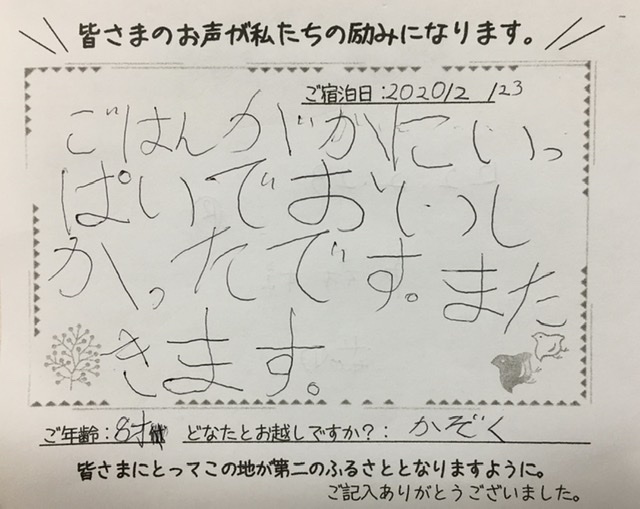 皆さまのお声が私たちの励みになります。
ご宿泊日:2020/2/23
ごはんがかにいっ
ぱいでおいし
かったです。また
きます。
ご年齢:8才 どなたとお越しですか?:かぞく
皆さまにとってこの地が第二のふるさととなりますように。
ご記入ありがとうございました。